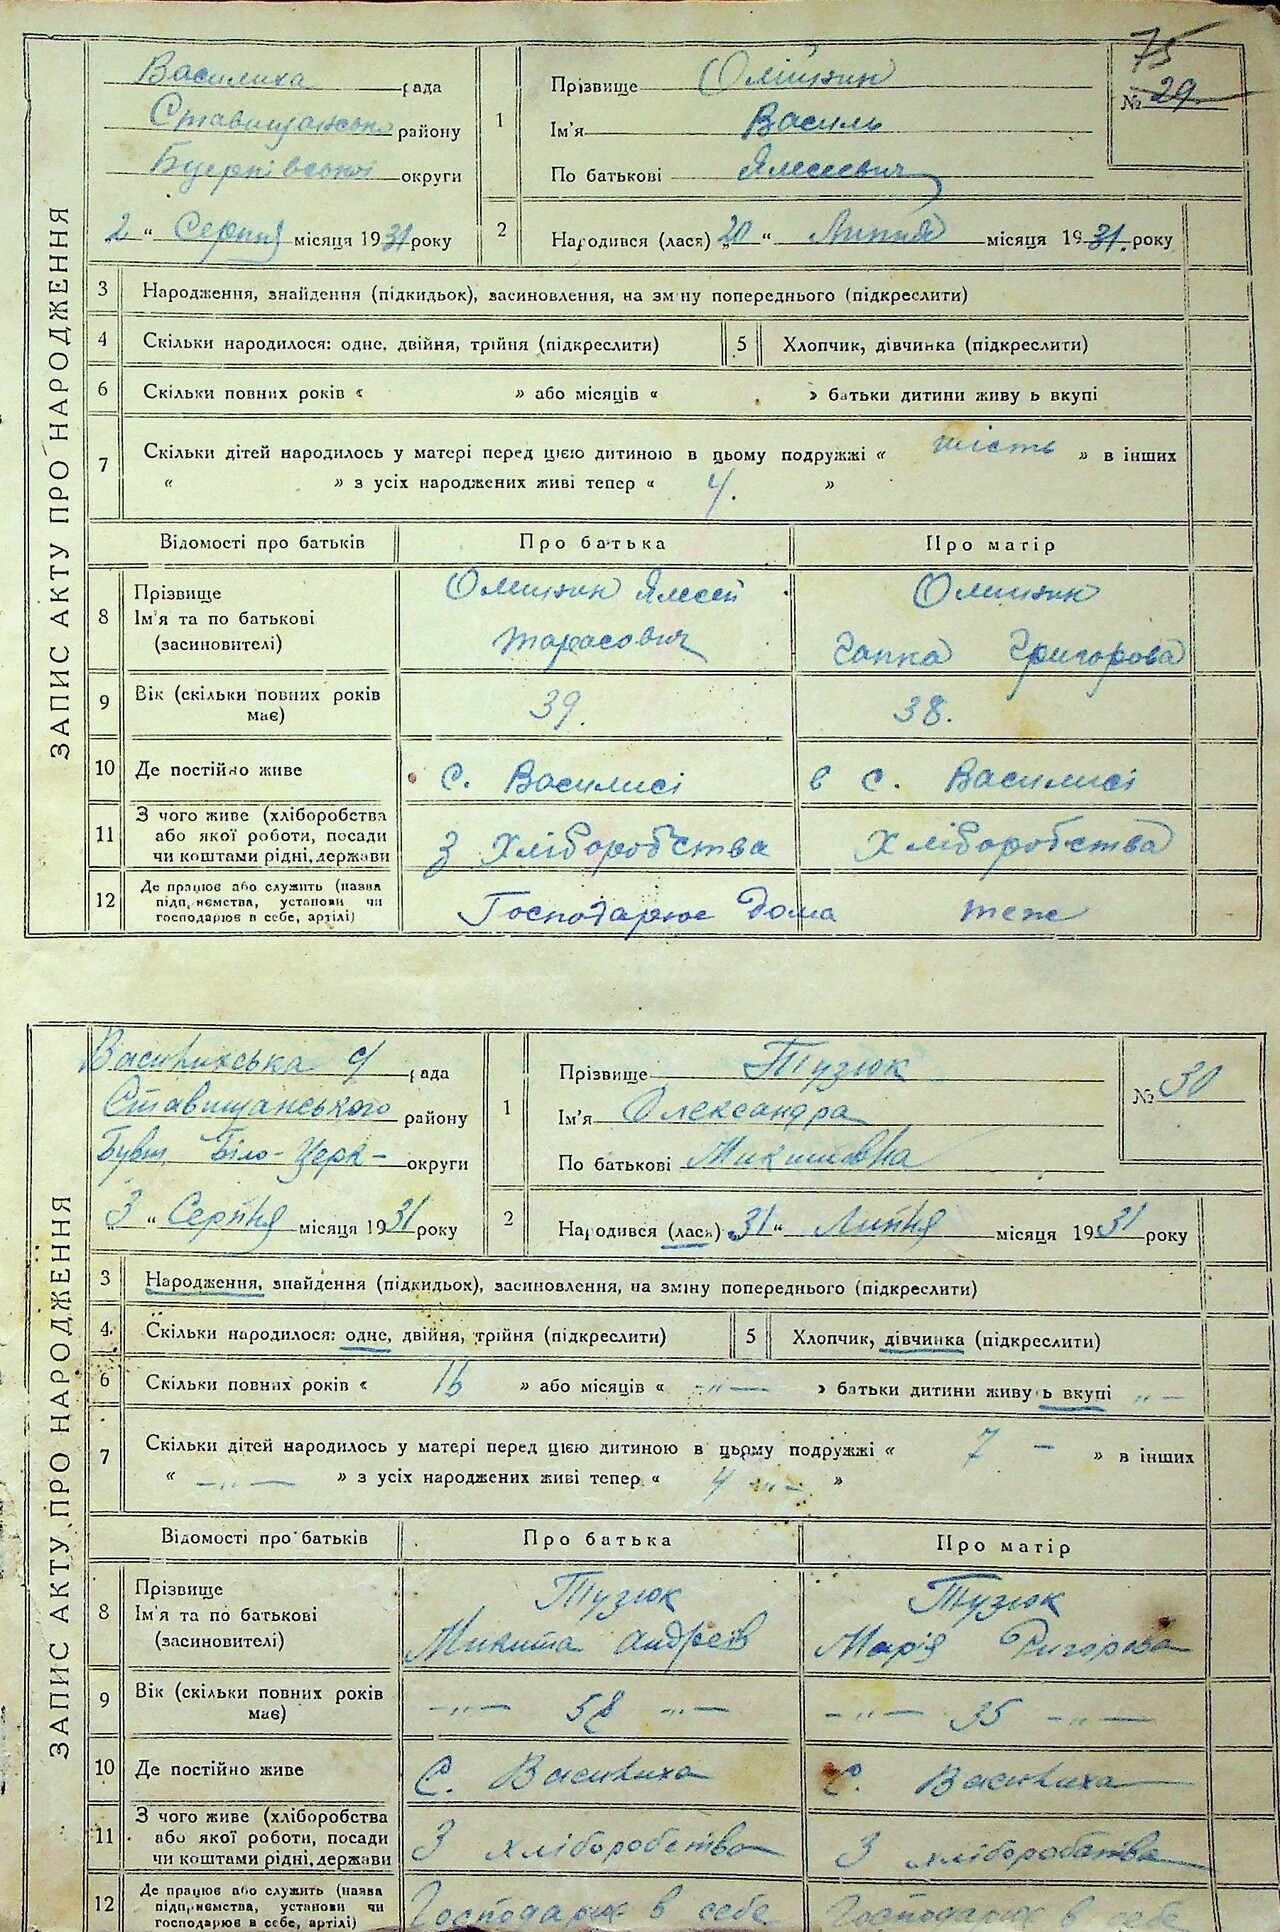 75
№ 29
ЗАПИС АКТУ ПРО НАРОДЖЕННЯ
Василиха рада
району
округи
2 " Серпня місяця 1931 року
1
Прізвище
Ім'я Василь
По батькові
2
Народився (лася) „20 " Липня місяця 1931. року
3 Народження, знайдення (підкидьок), засиновлення, на зміну попереднього (підкреслити)
4 Скільки народилося: одне, двійня, трійня (підкреслити) 5 Хлопчик, дівчинка (підкреслити)
6 Скільки повних років « » або місяців « » батьки дитини живу ь вкупі
7 Скільки дітей народилось у матері перед цією дитиною в цьому подружжі « шість » в інших
« » з усіх народжених живі тепер « 4. »
Відомості про батьків Про батька Про матір
8 Прізвище
Ім'я та по батькові Тарасович Гапка Григорова
(засиновителі)
9 Вік (скільки повних років має) 39. 38.
10 Де постійно живе с. Василисі в с. Василисі
11 З чого живе (хліборобства або якої роботи, посади чи коштами рідні, держави З Хліборобства Хліборобства
12 Де працює або служить (назва підприємства, установи чи господарює в себе, артілі) Господарює дома теж
ЗАПИС АКТУ ПРО НАРОДЖЕННЯ
Василихська с/ рада
Ставищанського району
Біло-Церк- округи
„3 " Серпня місяця 1931 року
1
Прізвище Тузюк
Ім'я Олександра
По батькові Микитовна
№ 30
2
Народився (лася) „31 " Липня місяця 1931 року
3 Народження, знайдення (підкидьок), засиновлення, на зміну попереднього (підкреслити)
4. Скільки народилося: одне, двійня, трійня (підкреслити) 5 Хлопчик, дівчинка (підкреслити)
6 Скільки повних років « 16 » або місяців « -„- » батьки дитини живу ь вкупі „ -
7 Скільки дітей народилось у матері перед цією дитиною в цьому подружжі « 7 - » в інших
« -„- » з усіх народжених живі тепер « 4 -„- »
Відомості про батьків Про батька Про матір
8 Прізвище Тузюк Тузюк
Ім'я та по батькові Микита Андреїв Марія Ригорова
(засиновителі)
9 Вік (скільки повних років має) -„- 58 -„- -„- 35 -„-
10 Де постійно живе С. Василиха С. Василиха
11 З чого живе (хліборобства або якої роботи, посади чи коштами рідні, держави З хліборобства З хліборобства
12 Де працює або служить (назва підприємства, установи чи господарює в себе, артілі) Господарює в себе Господарює в себе